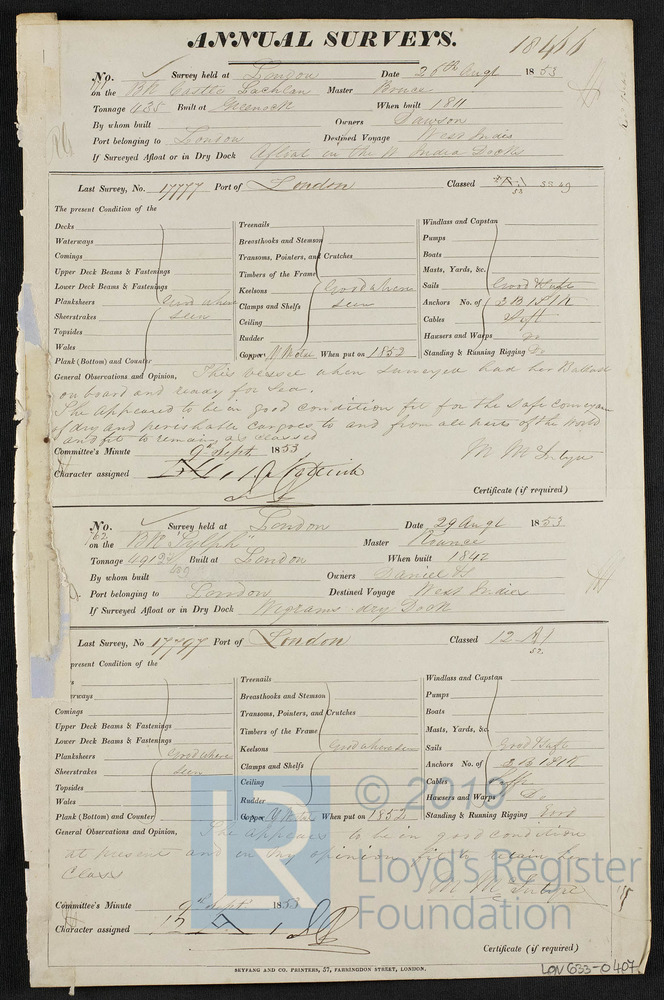 ANNUAL SURVEYS.
1846
No. Survey held at London Date 26th Augt 1853
761 on the Bk Castle Lachlan Master Bruce
Tonnage 435 Built at Greenock When built 1811
By whom built Owners Dawson
Port belonging to London Destined Voyage West Indies
If Surveyed Afloat or in Dry Dock Afloat in the W India Docks
Last Survey, No. 17777 Port of London Classed
The present Condition of the
Decks Treenails Windlass and Capstan
Waterways Breasthooks and Stemson Pumps
Comings Transoms, Pointers, and Crutches Boats
Upper Deck Beams & Fastenings Timbers of the Frame Masts, Yards, &c.
Lower Deck Beams & Fastenings Keelsons Good where Sails Good & Safe
Planksheers Good where Clamps and Shelfs seen Anchors No. of 2 B 1 S 1 K
Sheerstrakes seen Ceiling Cables Safe
Topsides Rudder Hawsers and Warps Do
Wales Copper Y Metal When put on 1852 Standing & Running Rigging Do
Plank (Bottom) and Counter
General Observations and Opinion, This vessel when surveyed had her Ballast
on board and ready for Sea.
She appeared to be in good condition fit for the safe conveyance
of dry and perishable cargoes to and from all parts of the World
and fit to remain as classed
Committee's Minute 9th Sept. 1853 M McIntyre
Character assigned
Certificate (if required)
No. Survey held at London Date 29 Augt 1853
762 on the Bk "Sylph" Master Rounce
Tonnage 491 Built at London When built 1842
By whom built Owners Daniel &
Port belonging to London Destined Voyage West Indies
If Surveyed Afloat or in Dry Dock Wigrams dry Dock
Last Survey, No 17797 Port of London Classed 12 A1
52
present Condition of the
s Treenails Windlass and Capstan
rways Breasthooks and Stemson Pumps
Comings Transoms, Pointers, and Crutches Boats
Upper Deck Beams & Fastenings Timbers of the Frame Masts, Yards, &c.
Lower Deck Beams & Fastenings Keelsons Good where seen Sails Good & Safe
Planksheers Good where Clamps and Shelfs Anchors No. of 2 B 1 S 1 K
Sheerstrakes seen Ceiling Cables Safe
Topsides Rudder Hawsers and Warps Do
Wales Copper Y Metal When put on 1852 Standing & Running Rigging Good
Plank (Bottom) and Counter
General Observations and Opinion, She appears to be in good condition
at present and in my opinion fit to retain her
Class
M McIntyre
Committee's Minute 9th Sept 1853
Character assigned 12 A 1
Certificate (if required)
SEYFANG AND CO. PRINTERS, 57, FARRINGDON STREET, LONDON.
LON 633-0407
© 2013
LR
Lloyd's Register
Foundation